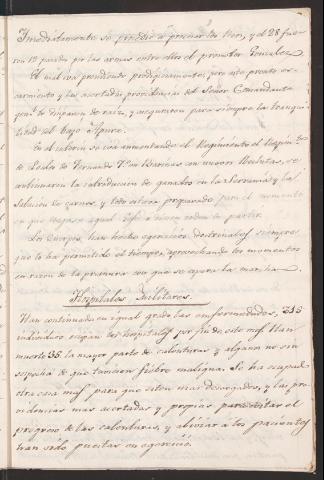 Inmediatamente se procedió a procesar los Reos, y el 28 fue-
ron 12 pasados por las armas entre ellos el promotor Gonzalez.
El mal iva prendiendo prodigiosamente; pero este pronto es-
carmiento y las acertadas providencias del Señor Comandante
gen.l lo disiparon de raiz, y aseguraron para siempre la tranqui-
lidad del bajo Apure.
En el interin se iva aumentando el Regimiento el Esquin.
de Leales de Fernando 7.º en Barinas con nuevos Reclutas, se
continuaron la introduccion de ganados en la Serrania y la
Salacion de carnes, y todo estava preparado para el momento
en que llegase aquel Gefe ó diesen orden de partir.
Los Cuerpos han hecho egercicios doctrinales siempre
que lo ha permitido el tiempo, aprovechando los momentos
en razon de la premura con que se espera la marcha.
Hospitales Militares.
Han continuado en igual grado las enfermedades, 315
individuos ocupan los Hospitales por fin de este mes. Han
muerto 35 la mayor parte de calenturas y alguno no sin
sospecha de que tuviesen fiebre maligna. Se ha ocupado
otra casa mas para que esten mas desaogados, y las pro-
videncias mas acertadas y propias para evitar el
progreso de las calenturas, y aliviar a los pacientes
han sido puestas en egercicio.